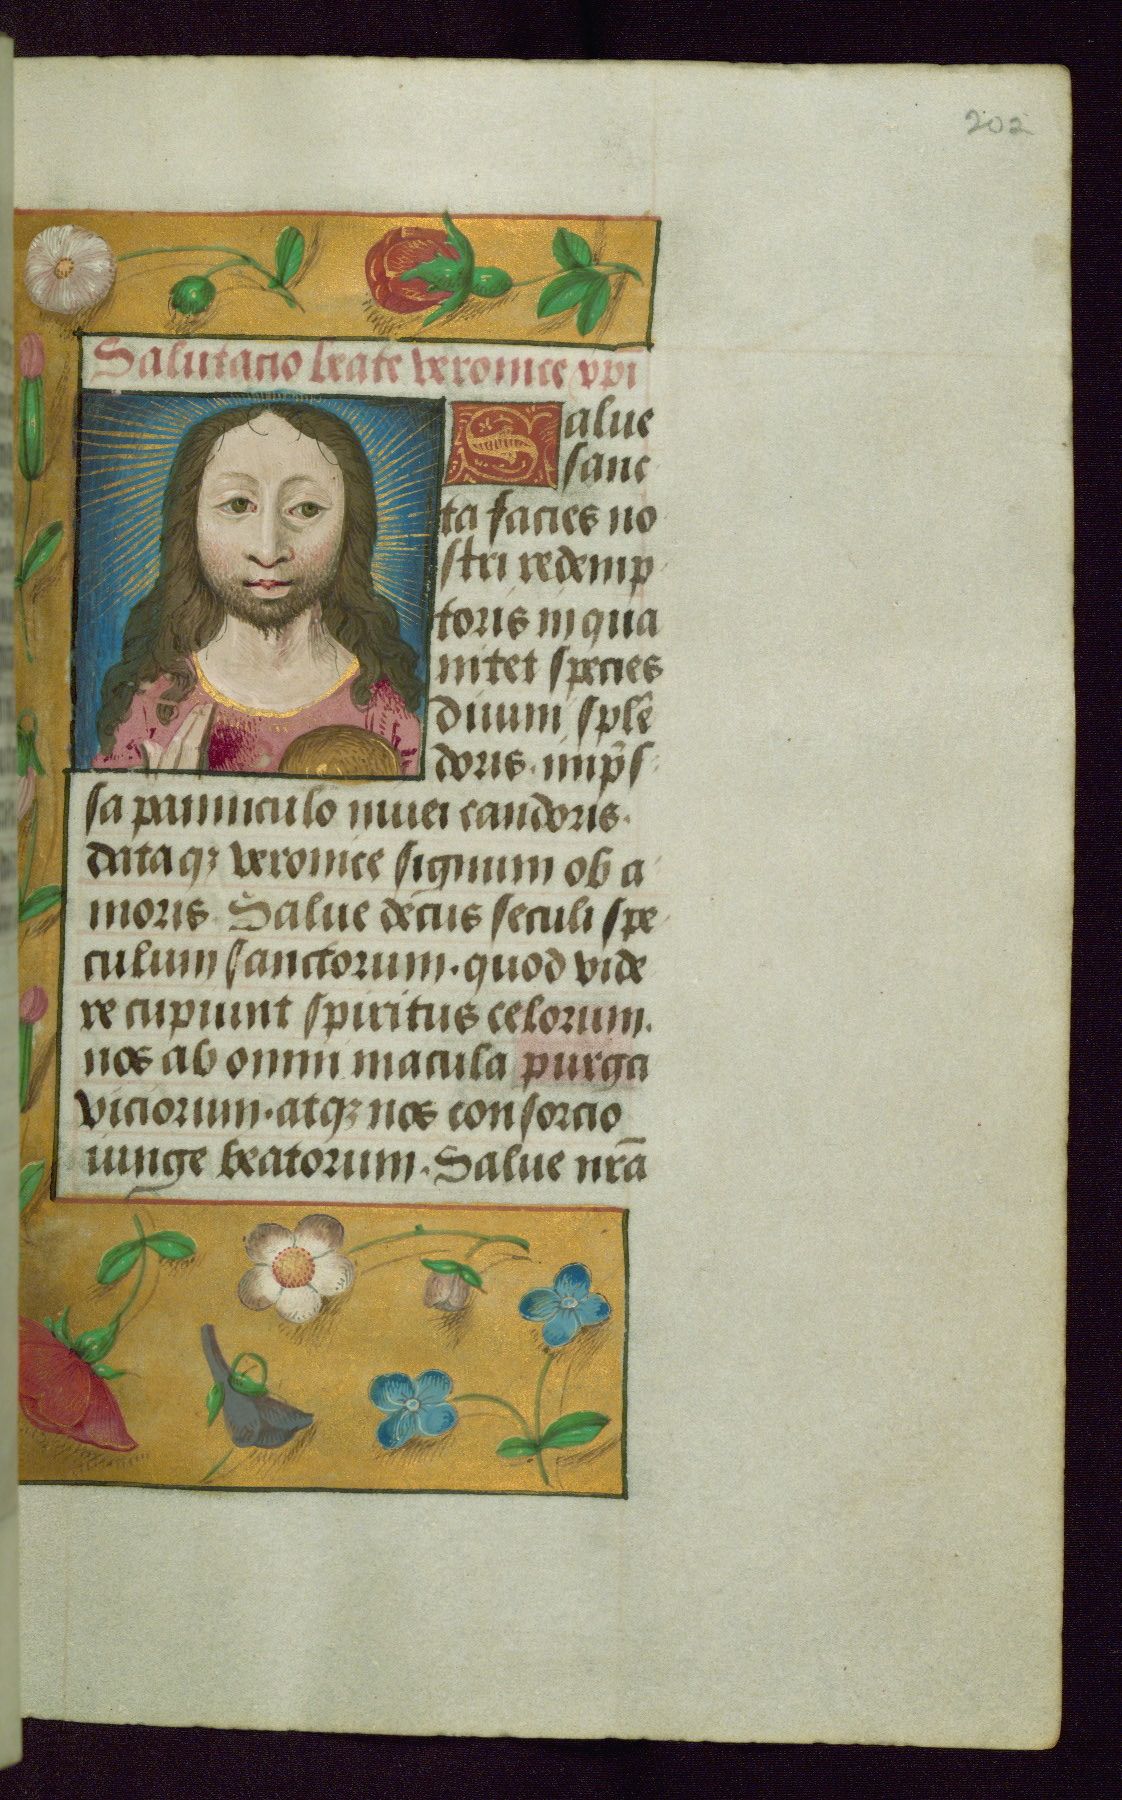 202
Salutacio beate veronice xp̄i
Salue
sanc
ta facies no
stri redemp
toris in qua
nitet species
diuini splē
doris. imp̄s
sa panniculo niuei candoris.
dataqꝫ veronice signum ob a
moris Salue decus seculi spe
culum sanctorum. quod vide
re cupiunt spiritus celorum.
nos ab omni macula purga
viciorum. atqꝫ nos consorcio
iunge beatorum. Salue nr̄a